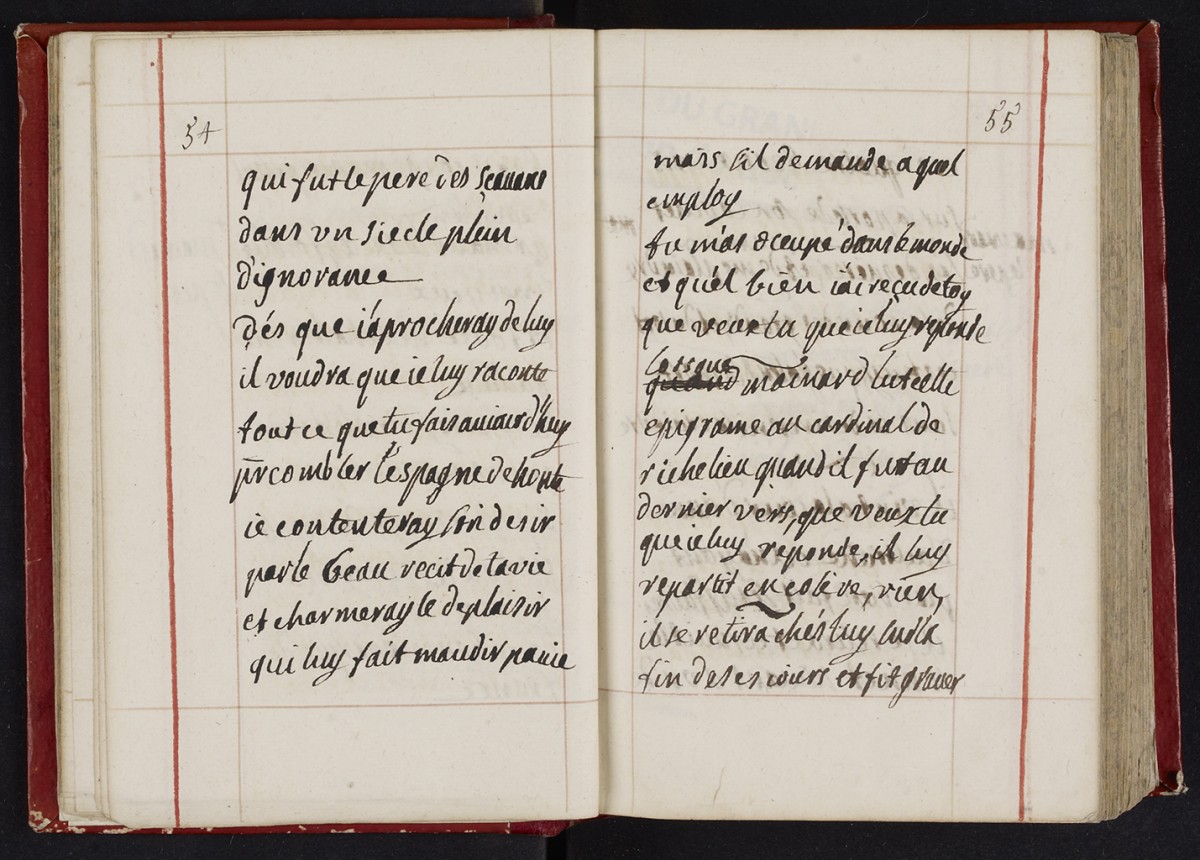 54
qui fut le pere des sçauans
dans vn siecle plein
d'ignorance
Dés que i'aprocheray de luy
il voudra que ie luy raconte
tout ce que tu fais auiourd'huy
pr combler l'espagne de honte
ie contenteray son desir
par le beau recit de ta vie
et charmeray le deplaisir
qui luy fait maudir pauie
55
mais s'il demande a quel
employ
tu m'as occupé dans le monde
et quel bien i'ai reçu de toy
que veux tu que ie luy reponde
lorsque
quand mainard lut celle
epigrame au cardinal de
richelieu quand il fut au
dernier vers, que veux tu
que ie luy reponde, il luy
repartit en colere, rien,
il se retira chés luy sur la
fin de ses iours et fit grauer